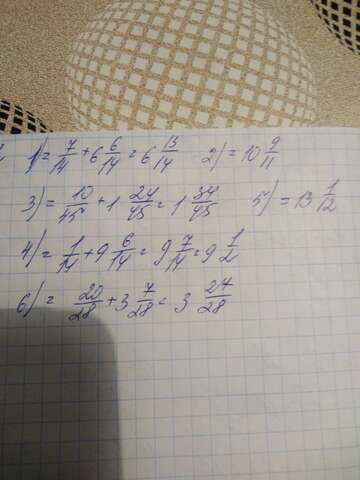 1) = 7/14 + 6 6/14 = 6 13/14 2) = 10 9/11
3) = 10/45 + 1 24/45 = 1 34/45 5) = 13 1/12
4) = 1/14 + 9 6/14 = 9 7/14 = 9 1/2
6) = 20/28 + 3 7/28 = 3 27/28